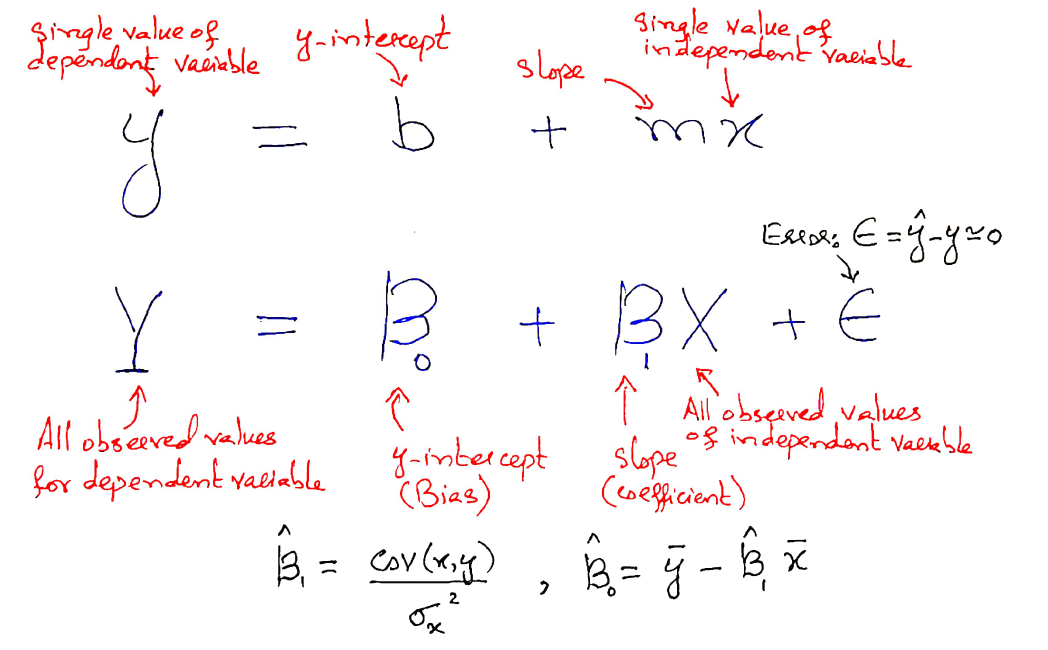 Single value of
dependent variable
y-intercept
slope
Single value of
independent variable
y = b + mx
Error: ϵ = ŷ - y ≃ 0
Y = β₀ + β₁X + ϵ
All observed values
for dependent variable
y-intercept
(Bias)
slope
(coefficient)
All observed values
of independent variable
β̂₁ = cov(x,y) / σₓ² , β̂₀ = ȳ - β̂₁ x̄